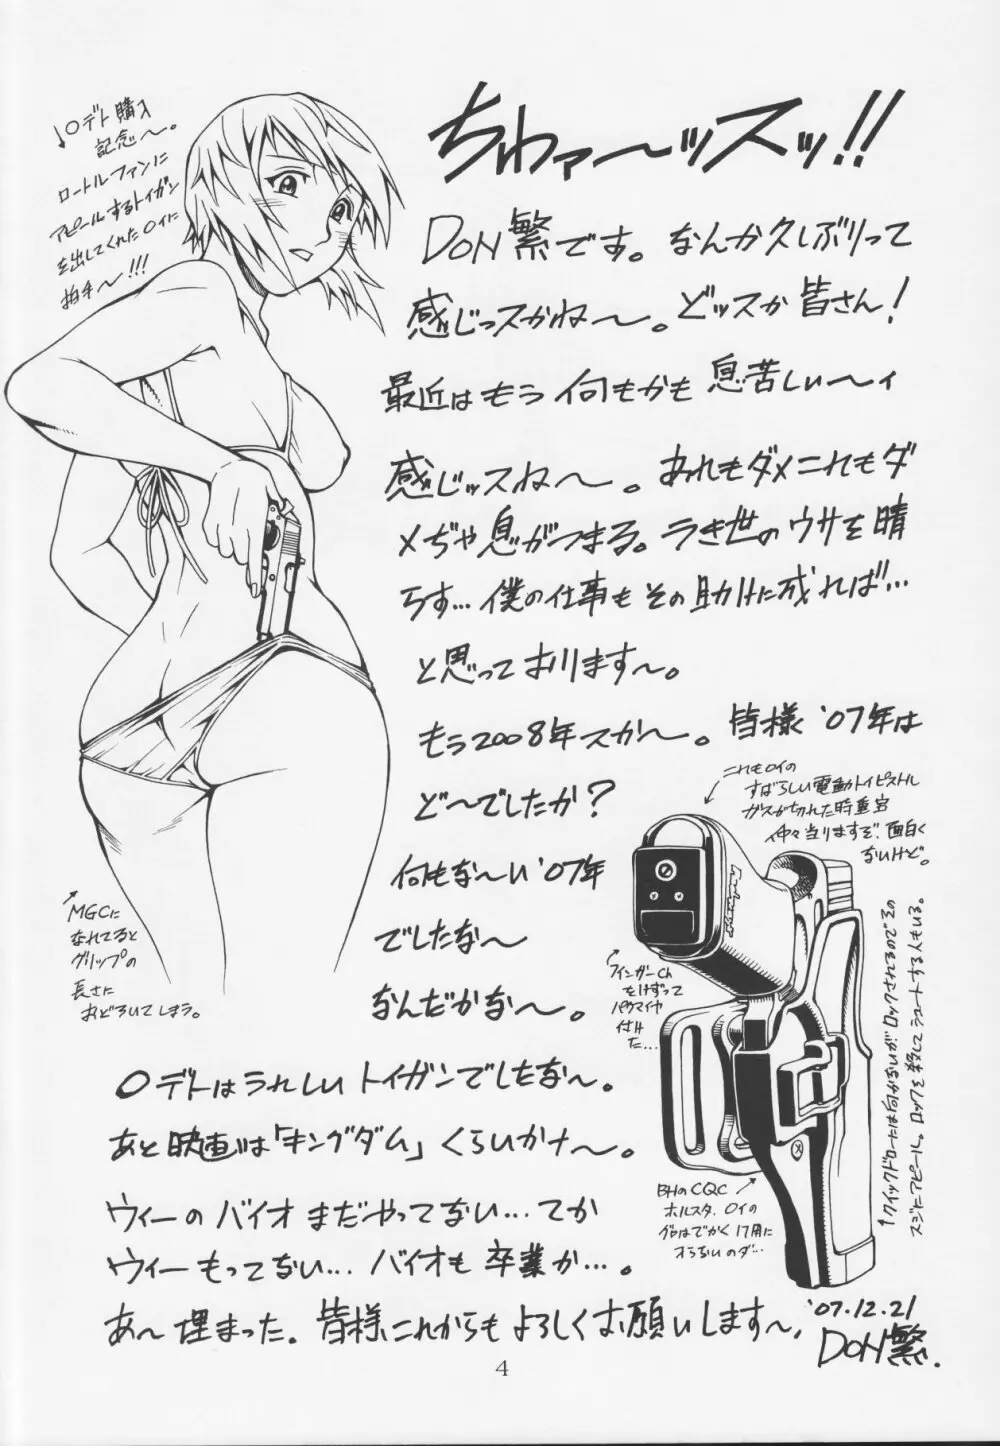 ちわァ〜ッスッ!!
DON繁です。なんか久しぶりって
感じっスかね〜。どッスか皆さん!
最近はもう何もかも息苦しぃ〜ィ
感じッスね〜。あれもダメこれもダ
メぢゃ息がつまる。うき世のウサを晴
らす…僕の仕事もその助けに成れば…
と思っております〜。
もう2008年スか〜。皆様'07年は
ど〜でしたか?
何もな〜い'07年
でしたな〜
なんだかな〜。
〇デトはうれしいトイガンでしたな〜。
あと映画は「キングダム」くらいかナ〜。
ウィーのバイオまだやってない…てか
ウィーもってない… バイオも卒業か…。
あ〜埋まった。皆様これからもよろしくお願いします〜。
'07.12.21
DON繁.
↓〇デト購入
記念〜。
ロートルファンに
アピールするトイガン
を出してくれた〇イに
拍手〜!!!
MGCに
なれてると
グリップの
長さに
おどろいてしまう。
これも〇イの
すばらしい電動トイピストル
ガスが切れた時重宝
仲々当りますぞ、面白く
ないけど。
フィンガーCh
をけずって
パクマイヤ
付けた…
BHのCQC
ホルスタ、〇イの
グロはでかく17用に
入らないのダ…
↑クイックドローには向かないがロックされるのでその
スジにアピール。ロックを殺してシュートする人もいる。
4